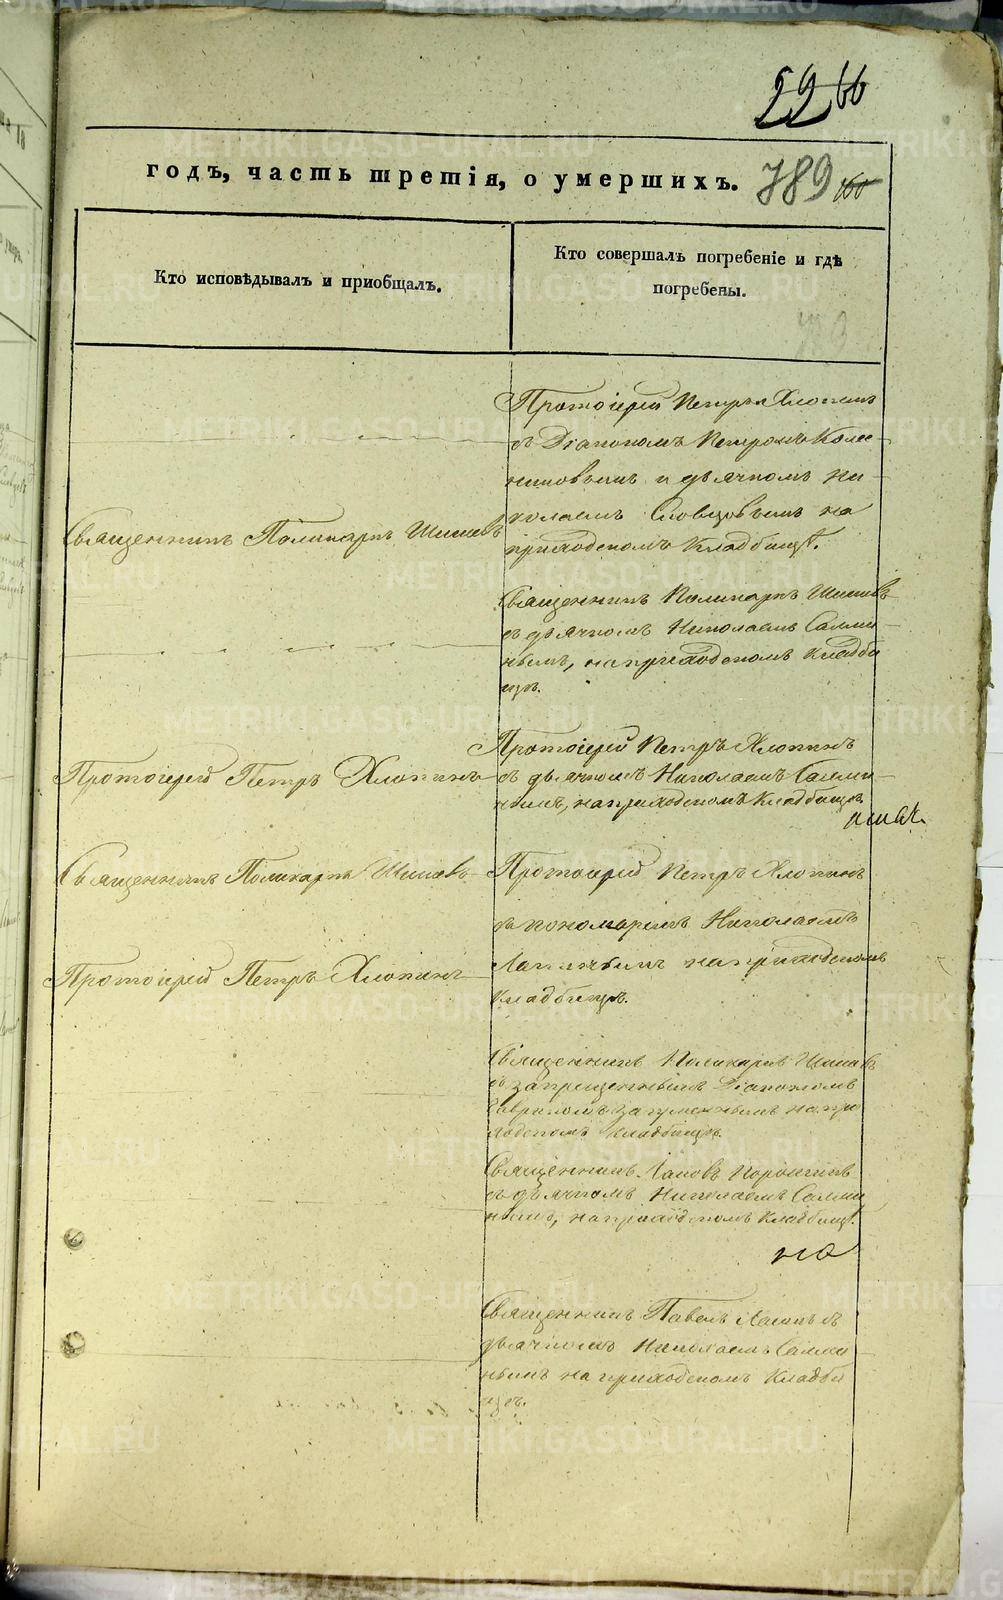 66
годъ, часть третія, о умершихъ. 789
Кто исповѣдывалъ и приобщалъ.
Кто совершалъ погребеніе и гдѣ
погребены.
Протоіерей Петръ Хлопинъ
съ Діакономъ Петромъ Колес-
никовымъ и дьячкомъ Ни-
колаемъ Словцовымъ на
приходскомъ кладбищѣ.
Священникъ Поликарпъ Шишевъ
Священникъ Поликарпъ Шишевъ
съ дьячкомъ Николаемъ
нымъ, на приходскомъ кладби
щѣ.
Протоіерей Петръ Хлопинъ
Протоіерей Петръ Хлопинъ
съ дьячкомъ Николаемъ
нымъ, на приходскомъ кладбищѣ
Священникъ Поликарпъ Шишевъ
Протоіерей Петръ Хлопинъ
съ пономаремъ Николаемъ
на приходскомъ
кладбищѣ.
Протоіерей Петръ Хлопинъ
Священникъ Поликарпъ Шишевъ
съ запрещеннымъ Діакономъ
на при
ходскомъ кладбищѣ.
Священникъ Іаковъ
съ дьячкомъ Николаемъ
нымъ, на приходскомъ кладбищѣ.
на
Священникъ Павелъ съ
дьячкомъ Николаемъ
нымъ на приходскомъ кладби
щѣ.
METRIKI.GASO-URAL.RU